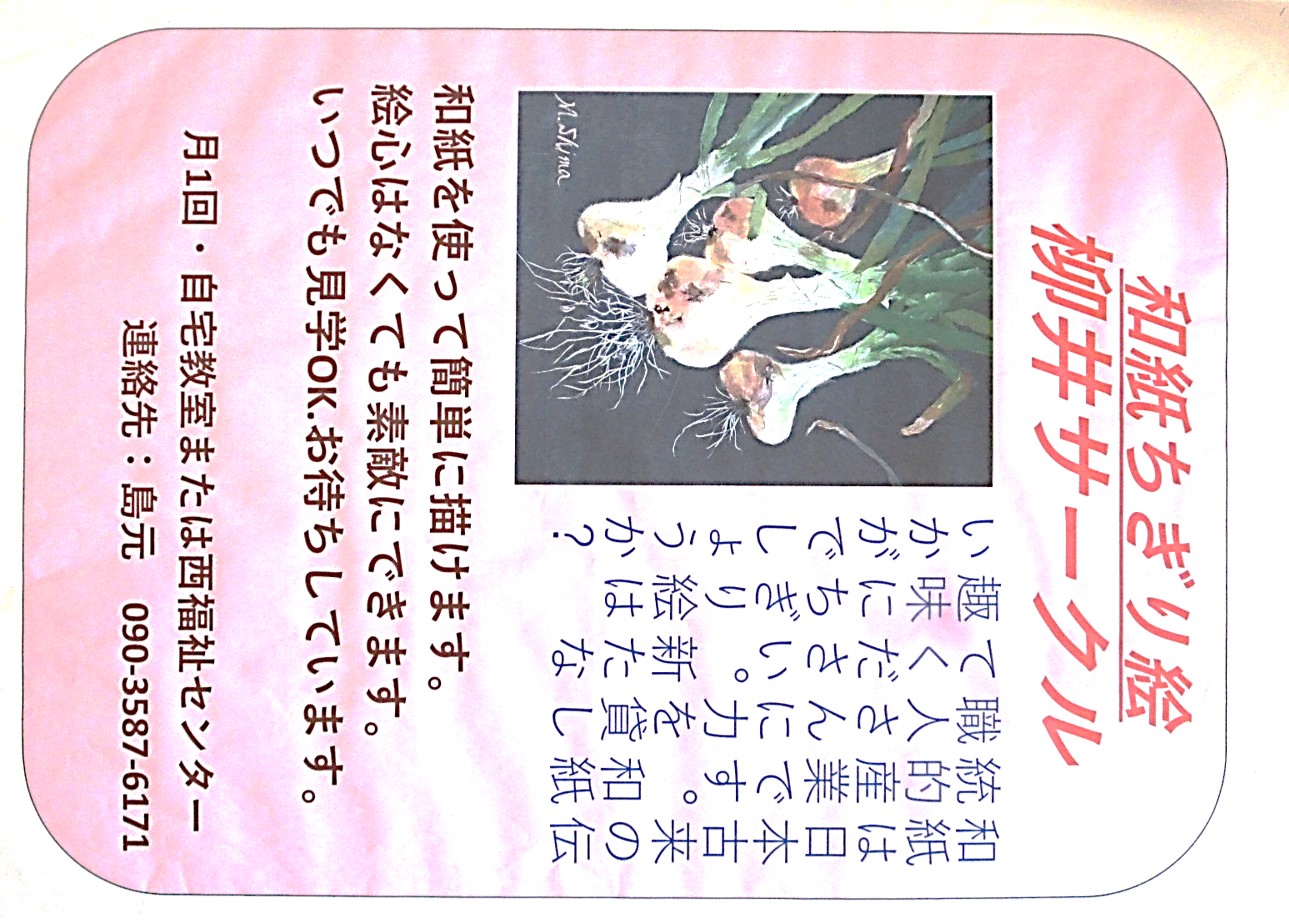 和紙ちぎり絵
柳井サークル
和紙は日本古来の伝
統的産業です。和紙
職人さんに力を貸し
てください。新たな
趣味にちぎり絵は
いかがでしょうか?
M.Shima
和紙を使って簡単に描けます。
絵心はなくても素敵にできます。
いつでも見学OK.お待ちしています。
月1回・自宅教室または西福祉センター
連絡先：島元 090-3587-6171